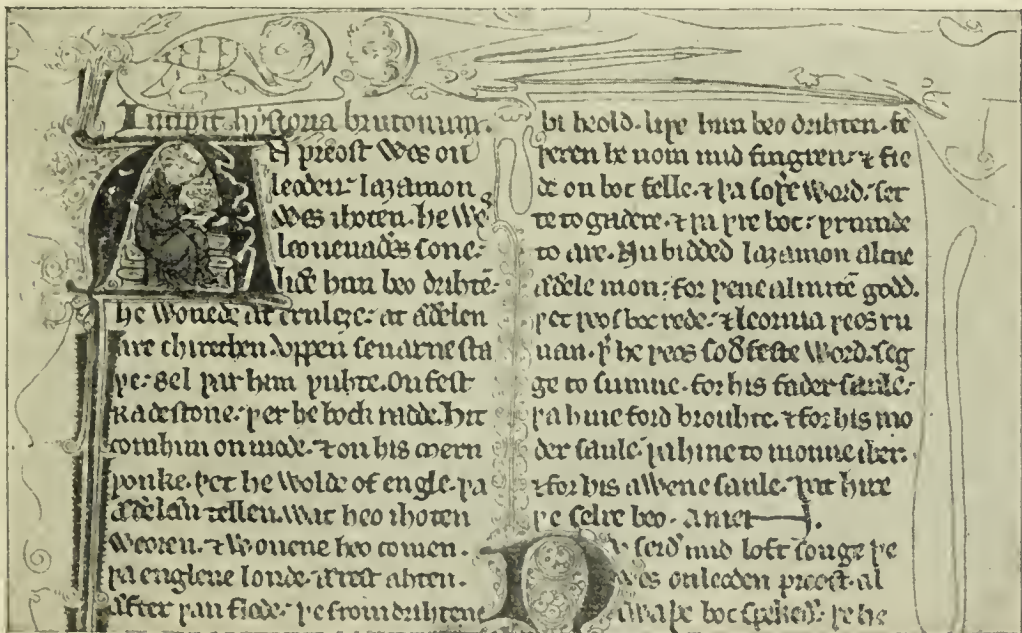 Incipit hystoria brutonum.
AN preost wes on
leoden. laȝamon
wes ihoten. he wes
leouenaðes sone.
liðe him beo drihtē.
he wonede at ernleȝe. at æðelen
are chirechen. vppen seuarne sta
þe. sel þar him þuhte. On fest
Radestone. þer he bock radde. Hit
com him on mode. ⁊ on his mern
þonke. þet he wolde of engle. þa
æðelæn tellen. wat heo ihoten
weoren. ⁊ wonene heo comen.
þa englene londe. ærest ahten.
æfter þan flode. þe from drihtene
bi heold. liþe him beo drihten. fe
þeren he nom mid fingren. ⁊ fie
de on boc felle. ⁊ þa soþe word. set
te to gadere. ⁊ þa þre boc. þrumde
to are. Nu bidded laȝamon alcne
æðele mon. for þene almitē godd.
þet þeos boc rede. ⁊ leornia þeos ru
nan. þ̄ he þeos soðfeste word. seg
ge to sumne. for his fader saule.
þa hine forð brouhte. ⁊ for his mo
der saule. þa hine to monne iber.
⁊ for his awene saule. þat hire
þe selre beo. amen.
Nv seið mid loft songe þe
wes on leoden preost. al
swa þe boc spekeð. þe he